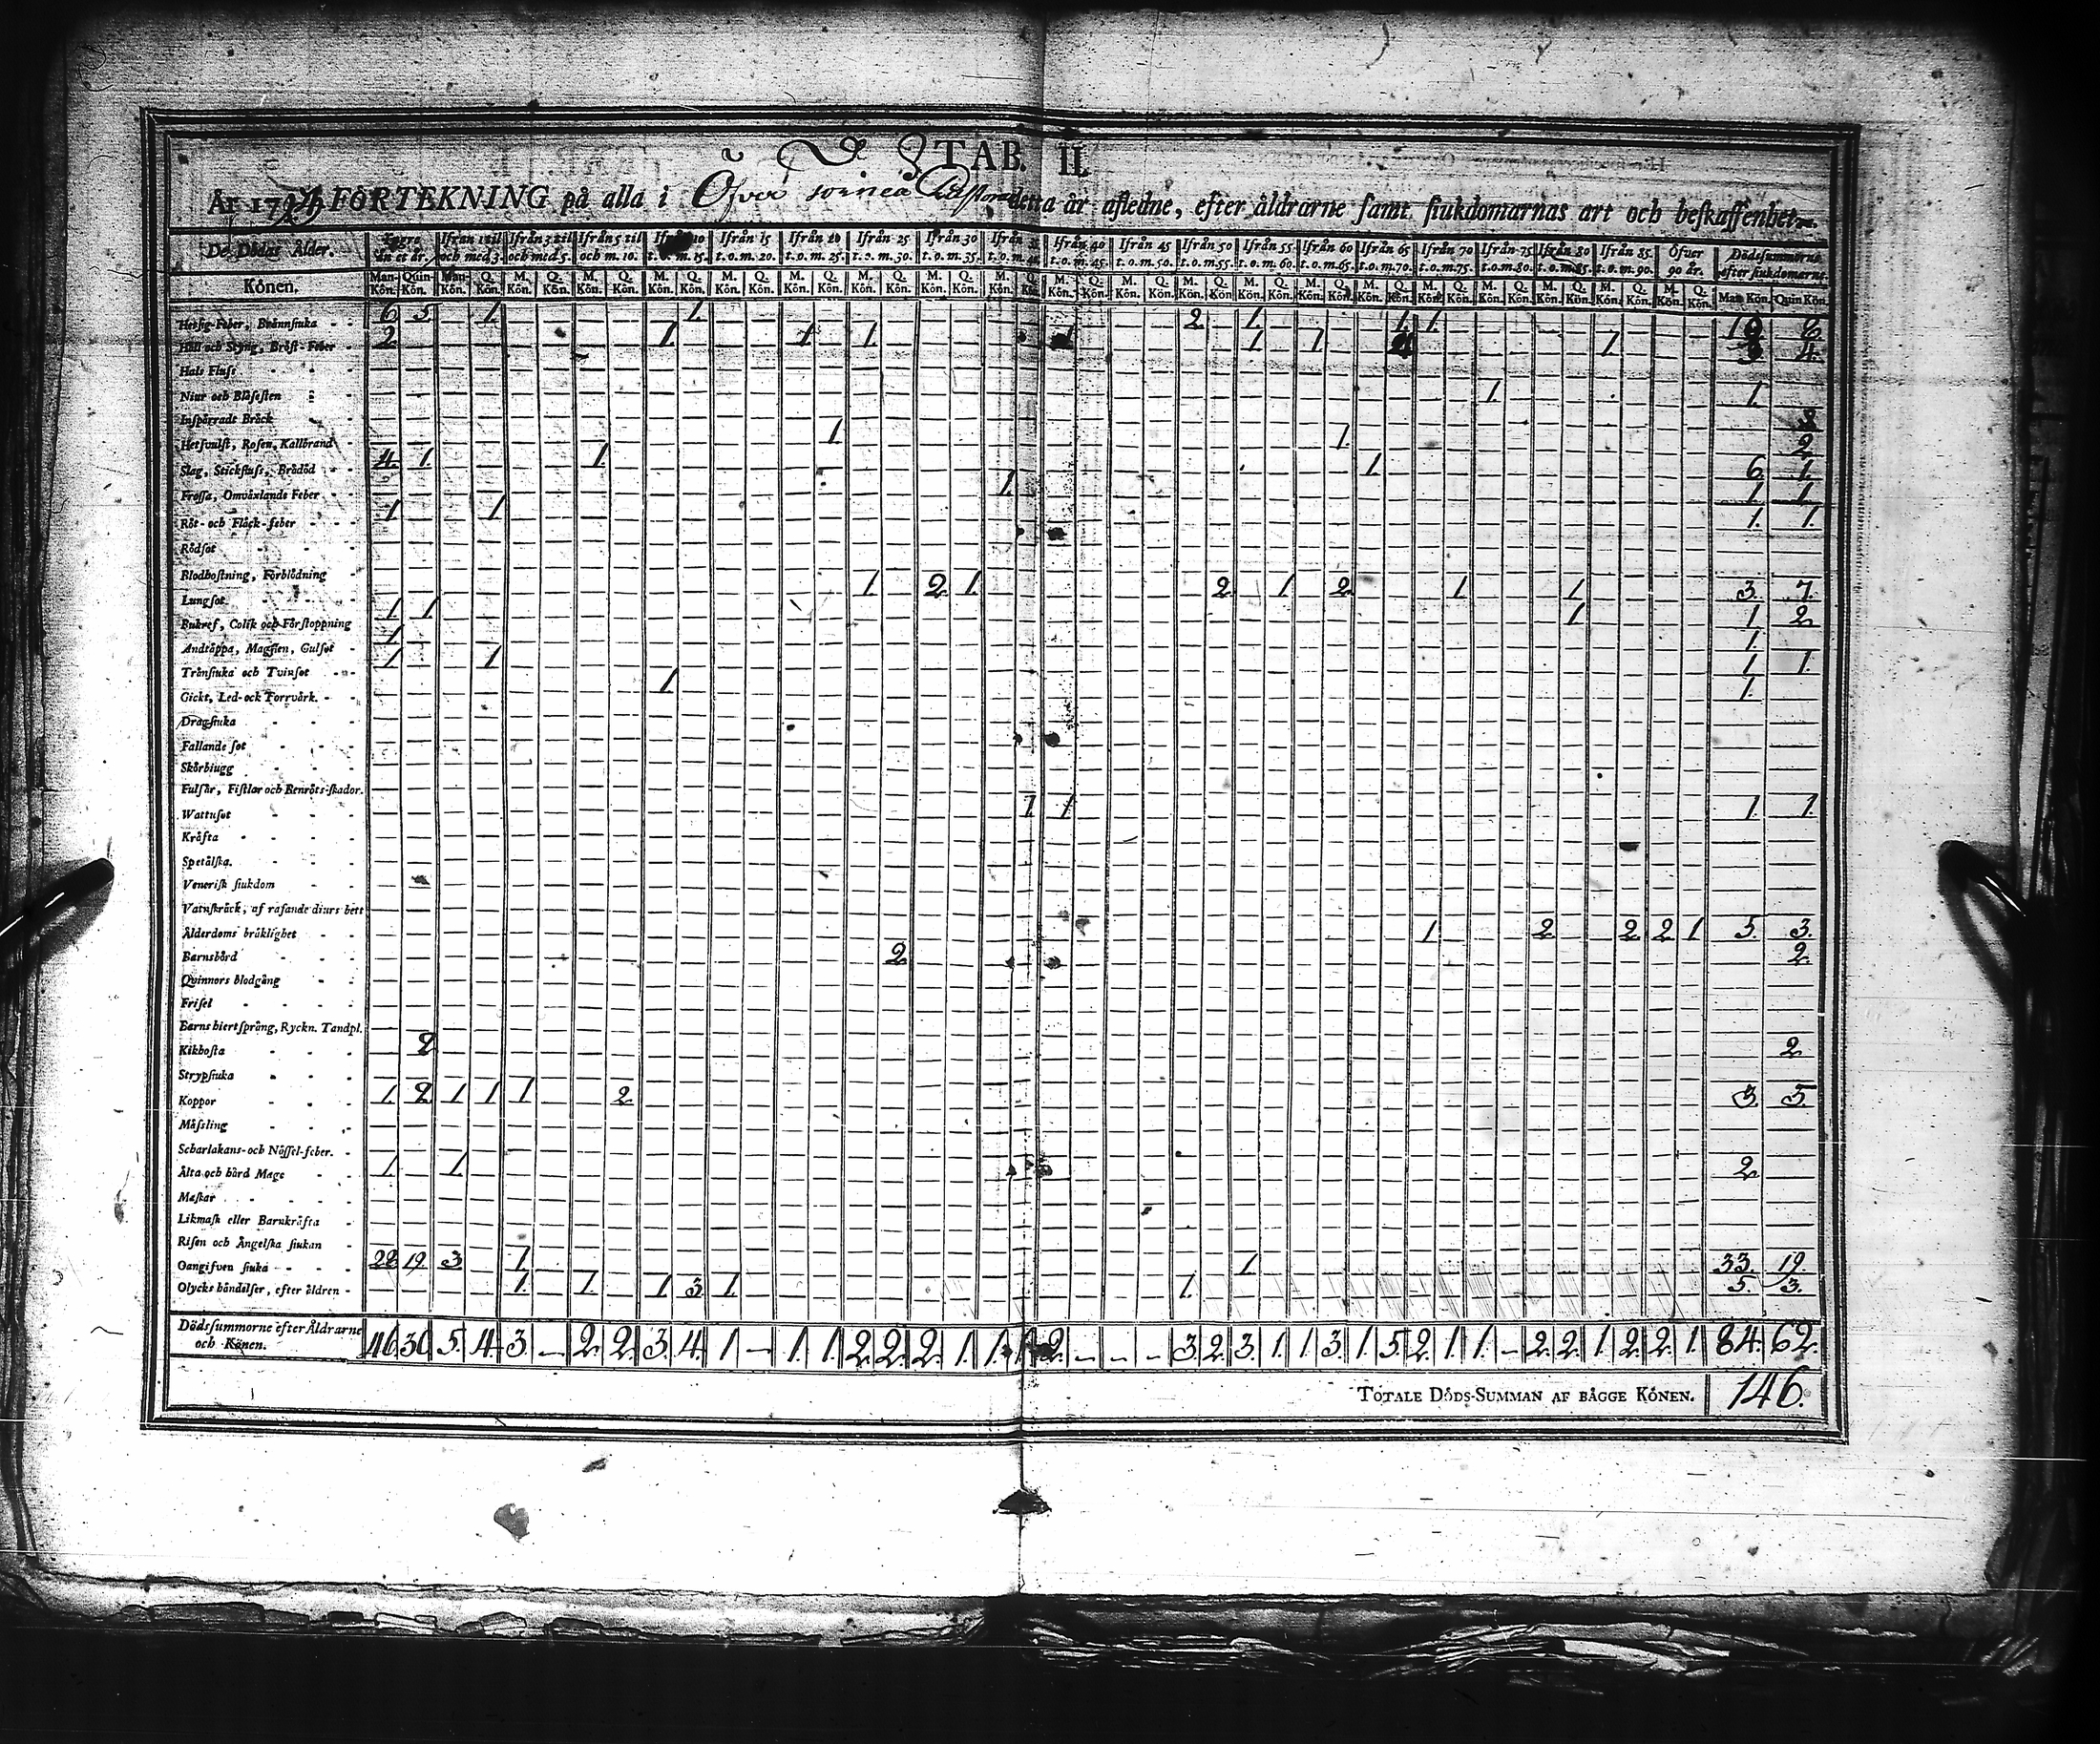 TAB. II.
År 179 FÖRTEKNING på alla i Öfver Tornea detta år afledne, efter åldrarne samt siukdomarnas art och beskaffenhet.
De Dödas Ålder. Yngre än et år. Ifrån 1 til och med 3. Ifrån 3 til och med 5. Ifrån 5 til och m. 10. Ifrån 10 t. o. m. 15. Ifrån 15 t. o. m. 20. Ifrån 20 t. o. m. 25. Ifrån 25 t. o. m. 30. Ifrån 30 t. o. m. 35. Ifrån t. o. m. 40. Ifrån 40 t. o. m. 45. Ifrån 45 t. o. m. 50. Ifrån 50 t. o. m. 55. Ifrån 55 t. o. m. 60. Ifrån 60 t. o. m. 65. Ifrån 65 t. o. m. 70. Ifrån 70 t. o. m. 75. Ifrån 75 t. o. m. 80. Ifrån 80 t. o. m. 85. Ifrån 85 t. o. m. 90. Öfver 90 år. Dödssummorne efter siukdomarne.
Könen. Man-Kön. Quin-Kön. Man-Kön. Q. Kön. M. Kön. Q. Kön. M. Kön. Q. Kön. M. Kön. Q. Kön. M. Kön. Q. Kön. M. Kön. Q. Kön. M. Kön. Q. Kön. M. Kön. Q. Kön. M. Kön. Q. Kön. M. Kön. Q. Kön. M. Kön. Q. Kön. M. Kön. Q. Kön. M. Kön. Q. Kön. M. Kön. Q. Kön. M. Kön. Q. Kön. M. Kön. Q. Kön. M. Kön. Q. Kön. M. Kön. Q. Kön. M. Kön. Q. Kön. M. Kön. Q. Kön. Man Kön. Quin Kön.
Hetsig-Feber, Brännsiuka 6 5 1 1. 2 1. 1 1 8
Håll och Styng, Bröst-Feber 2 1 1 1 1 1 1 1 4
Hals Fluss
Niur och Blåsesten 1 1
Inspärrade Bråck
Hetsvulst, Rosen, Kallbrand 1 1 2
Slag, Stickfluss, Brådöd 4. 1. 1. 1 6 1.
Frossa, Omväxlande Feber 1. 1. 1
Röt- och Fläck-feber 1 1 1. 1.
Rödsot
Blodhostning, Förblödning
Lungsot 1. 2 1. 2 1 2 1 1 3. 7.
Bukref, Colik och Förstoppning 1. 1 1 1 2
Andtäppa, Magsien, Gulsot 1 1.
Trånsiuka och Tvinsot 1 1 1 1.
Gickt, Led- och Torrvärk. 1 1.
Dragsiuka
Fallande sot
Skörbiugg
Fulsår, Fistlar och Benröts-skador.
Wattusot 1 1 1. 1.
Kräfta
Spetälska.
Venerisk siukdom
Vatnskräck, af rasande diurs bett
Ålderdoms bräklighet 1 2 2 2 1 5. 3.
Barnsbörd 2 2.
Qvinnors blodgång
Frisel
Barns hiertsprång, Ryckn. Tandpl.
Kikhosta 2 2
Strypsiuka
Koppor 1. 2 1 1 1 2 3. 5.
Mässling
Scharlakans- och Nässel-feber.
Älta och hård Mage 1. 1 2
Maskar
Likmask eller Barnkräfta
Risen och Ängelska siukan
Oangifven siuka 28 19 3 1. 1 33. 19.
Olycks händelser, efter åldren 1. 1. 1. 3 1. 1. 5. 3.
Dödssummorne efter Åldrarne och Könen. 46. 36 5. 4. 3. — 2. 2. 3. 4. 1 — 1. 1. 2. 2. 2. 1. 1. 2. — — — 3 2. 3. 1. 1 3. 1. 5. 2. 1 1. — 2. 2. 1 2. 2. 1. 84. 62.
TOTALE DÖDS-SUMMAN AF BÄGGE KÖNEN. 146.